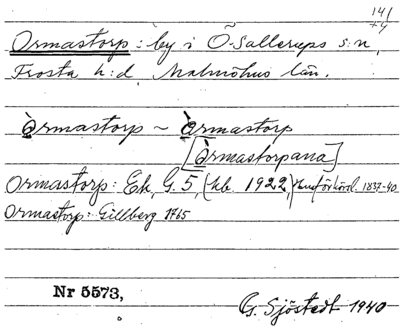 14/
+4
Ormastorp: by i Ö. Sallerups s:n,
Frosta h:d, Malmöhus län.
Òrmastorp ~ Òrmastorp
[Òrmastorpana]
Ormastorp: Ek, G. 5, (kb 1922, Husförhörsl. 1837-40
Ormastorp: Gillberg 1765
Nr 5573,
G. Sjöstedt 1940